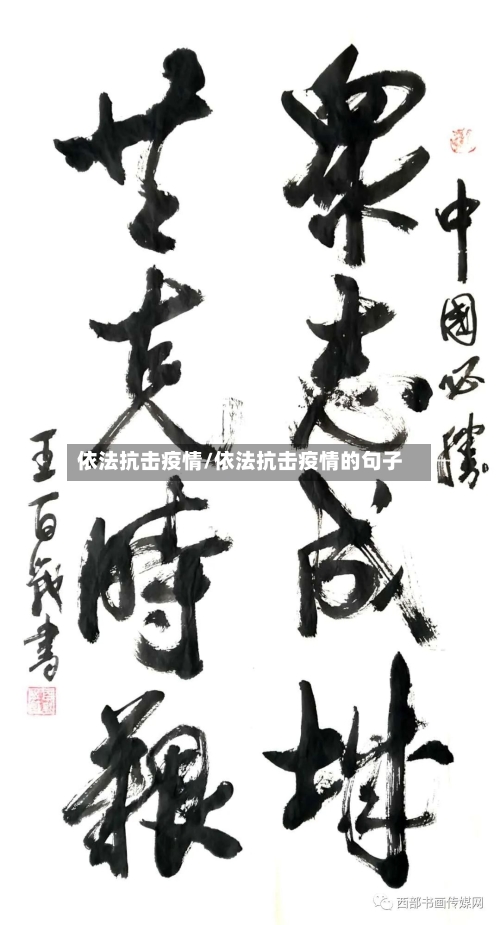 中國必勝
眾志成城
共克時艱
王百戰書
依法抗击疫情/依法抗击疫情的句子
西部书画传媒网